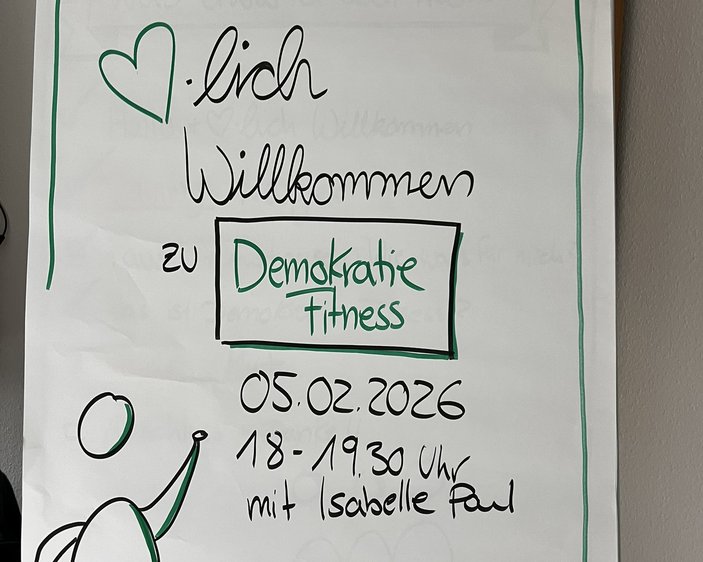 ♡.lich
Willkommen
zu Demokratie
fitness
05.02.2026
18-19.30 Uhr
mit Isabelle Paul